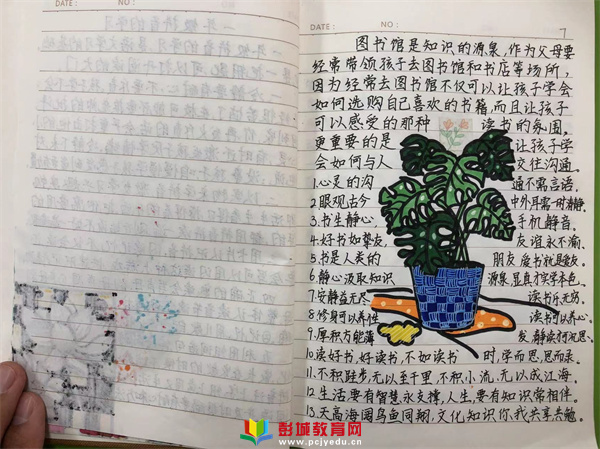 DATE: NO:
DATE: NO:
7
图书馆是知识的源泉,作为父母要
经常带领孩子去图书馆和书店等场所,
因为经常去图书馆不仅可以让孩子学会
如何选购自己喜欢的书籍,而且让孩子
可以感受的那种 读书的氛围,
更重要的是 让孩子学
会如何与人 交往沟通。
1.心灵的沟 通不需言语。
2.眼观古今 中外,耳需一时清静。
3.书生静心, 手机静音。
4.好书如挚友, 友谊永不渝。
5.书是人类的 朋友
6.静心汲取知识 源泉,显真才实学本色。
7.安静益无尽 读书乐无穷。
8.修身可以养性 读书可以养心。
9.厚积方能薄 发,静读
10.读好书,好读书,不如读书 时,学而思,思而录。
11.不积跬步,无以至千里,不积小流,无以成江海。
12.生活要有智慧永支撑,人生要有知识常相伴。
13.天高海阔鸟鱼同翔,文化知识你我共享共勉。
彭城教育网
www.pcjyedu.cn